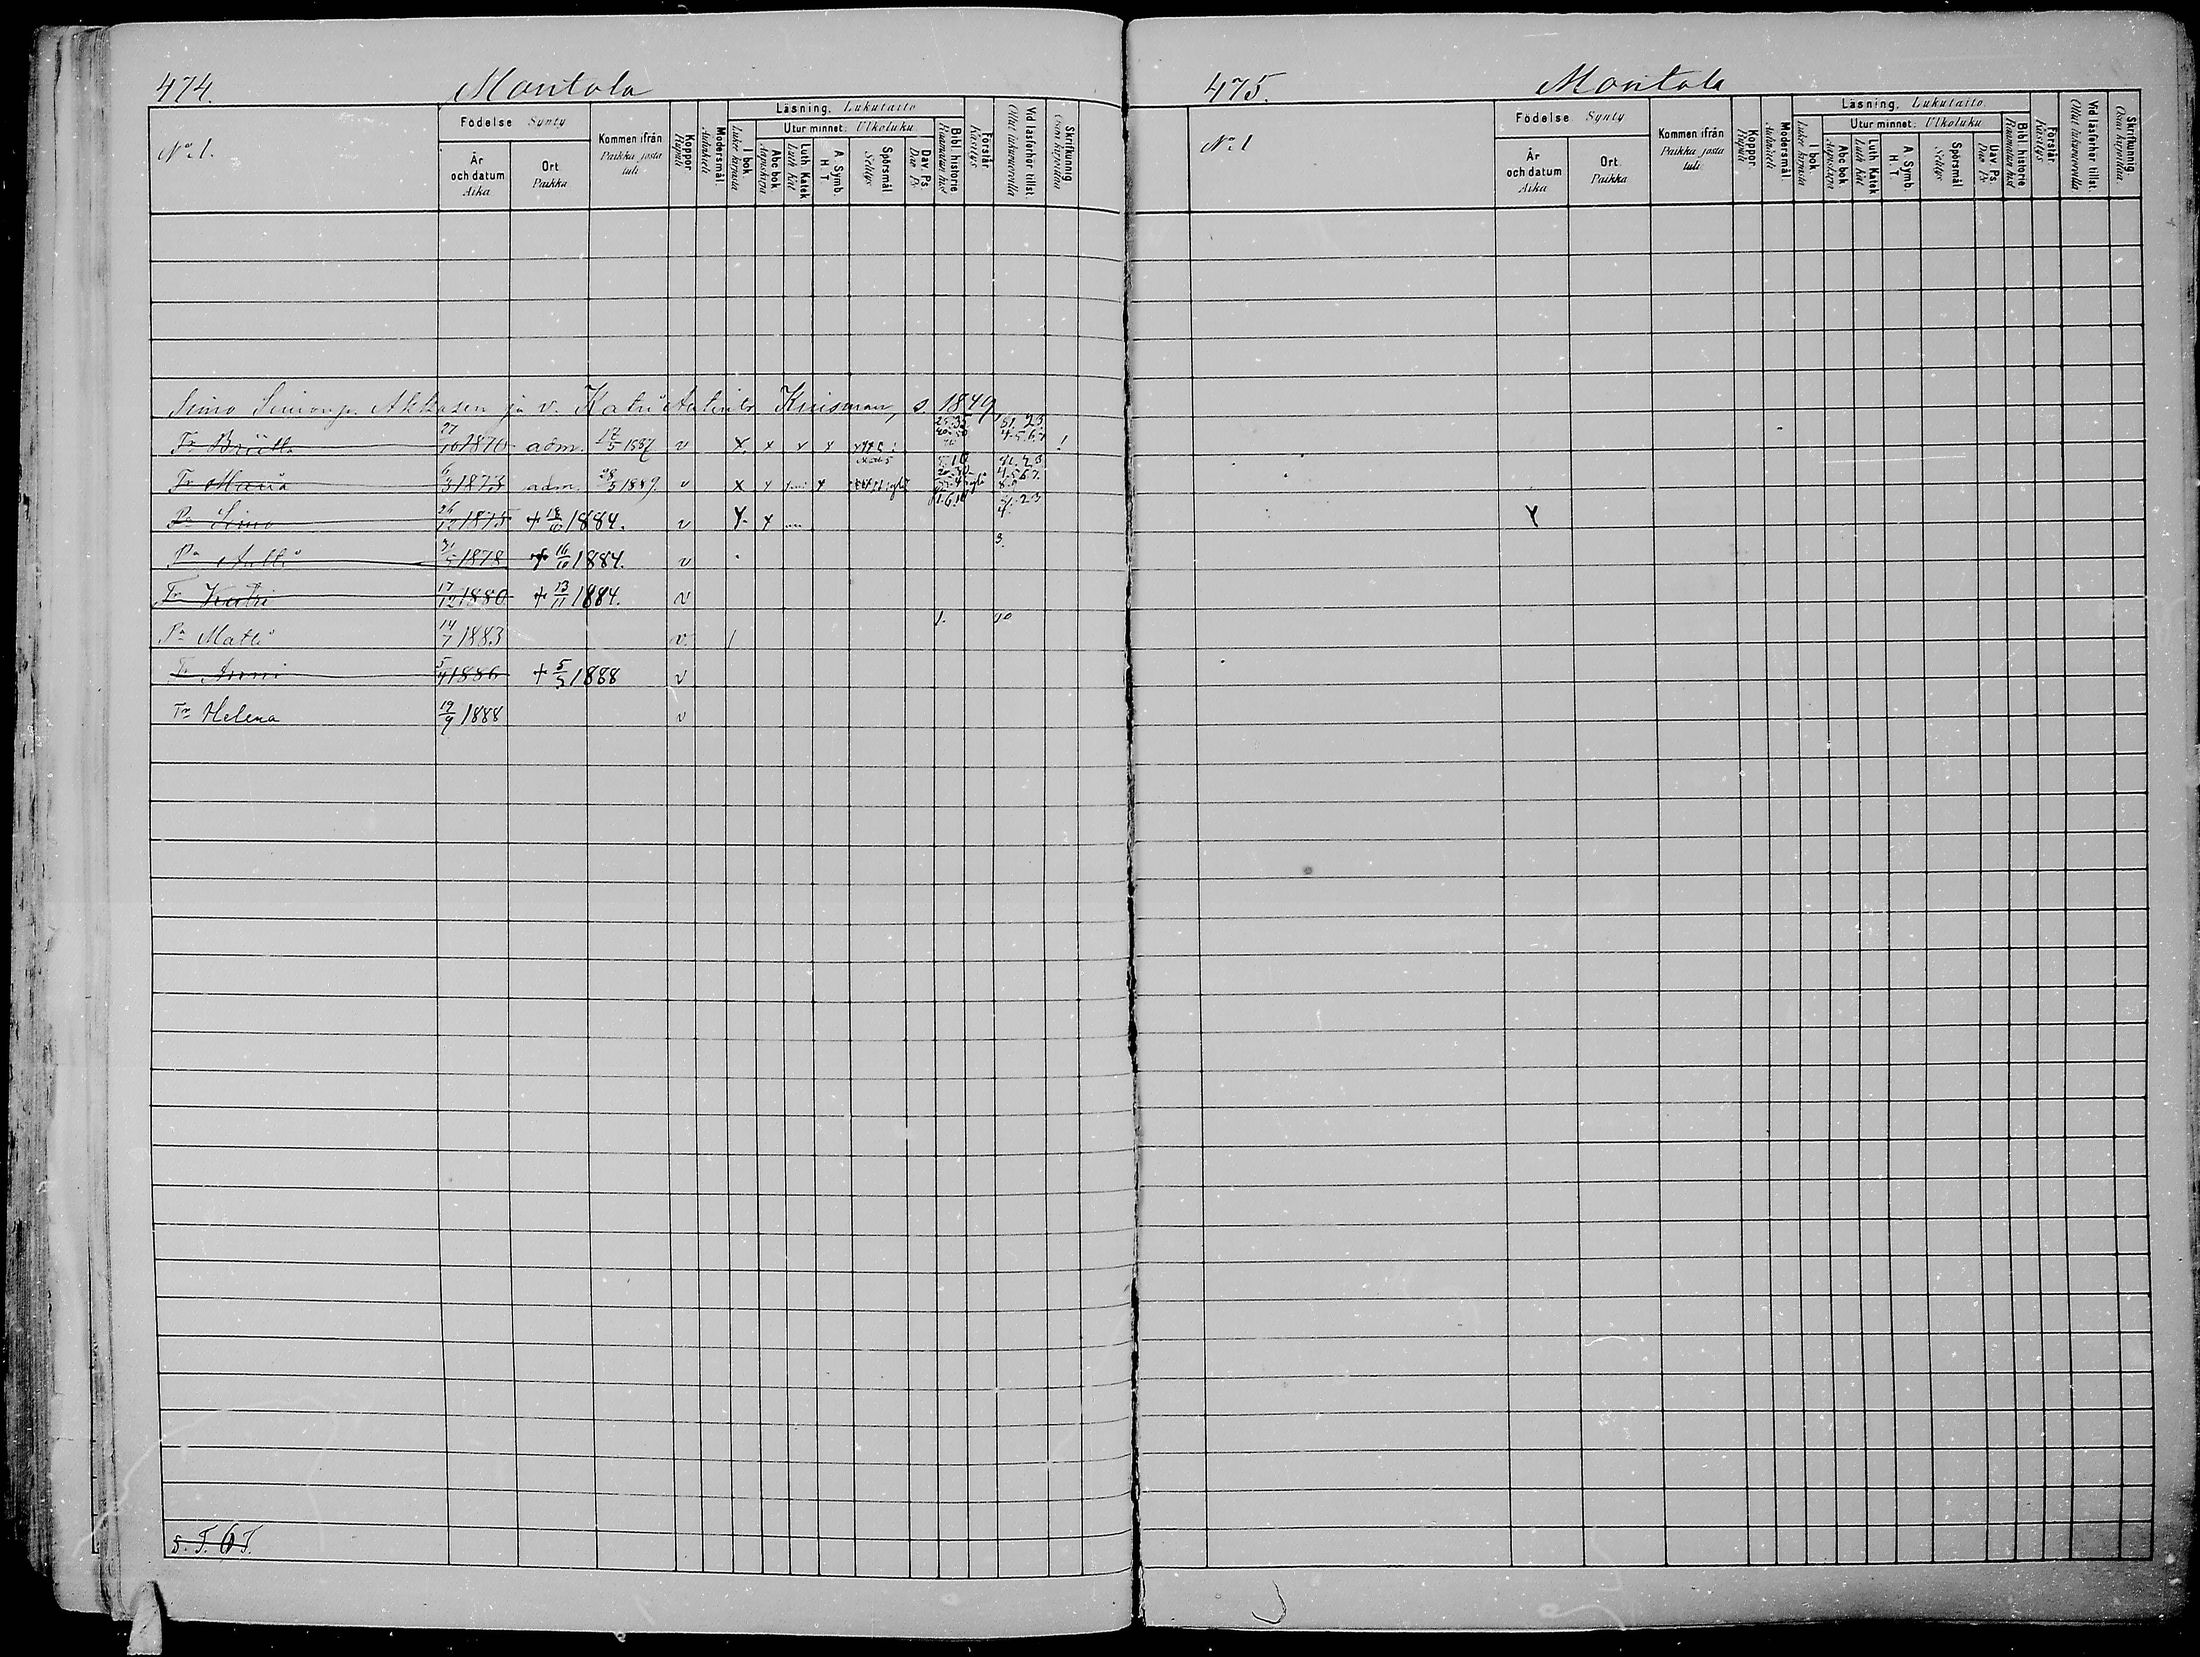 474. Mantola
No 1.
Födelse Synty
År och datum Aika
Ort Paikka
Kommen ifrån Paikka josta tuli
Koppor. Rupuli
Modersmål. Äidinkieli
Läsning. Lukutaito
I bok. Lukee kirjasta
Utur minnet. Ulkoluku
Abc bok Aapiskirja
Luth. Katek. Luth Kat
A. Symb. H. T.
Spörsmål Selitys
Dav. Ps. Dav. Ps.
Bibl. historie Raamatun hist
Förstår. Käsitys
Vid läsförhör tillst. Ollut lukuluvuilla
Skrifkunnig. Osaa kirjoittaa
Simo Simonp. Akkasen ja v. Katri Antint. Kuisman, s. 1849,
Tr Britta 27/10 1870 adm. 17/5 1887 v x x x x
Tr Maria 6/3 1873 adm. 28/5 1889. v x x x
Pa Simo 26/12 1875 + 18/10 1884. v x x
Pa Antti 31/5 1878 + 16/10 1884. v 3.
Tr Katri 17/12 1880 + 13/11 1884. v
Pa Matti 14/7 1883 v. / 1. 90
Tr Anni 5/4 1886 + 5/5 1888 v
Tr Helena 19/9 1888 v
s. T. 6 T.
475. Mantola
No 1
Födelse Synty
År och datum Aika
Ort. Paikka
Kommen ifrån Paikka josta tuli
Koppor. Rupuli
Modersmål. Äidinkieli
Läsning. Lukutaito.
I bok. Lukee kirjasta
Utur minnet. Ulkoluku
Abc bok Aapiskirja
Luth. Katek Luth Kat
A. Symb. H. T.
Spörsmål Selitys
Dav. Ps. Dav Ps
Bibl. historie Raamatun hist
Förstår. Käsitys
Vid läsförhör tillst.
Skrifkunnig. Osaa kirjoittaa